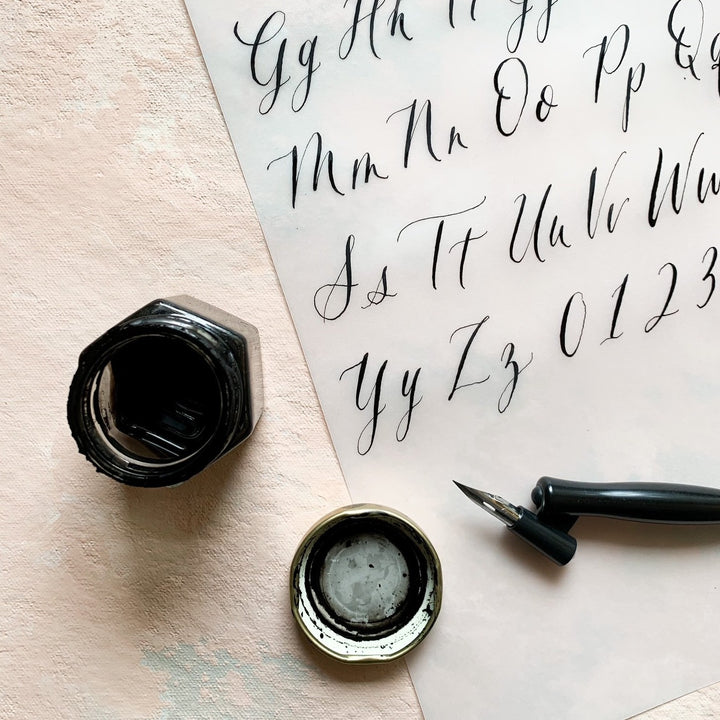 Gg Hh
Mm Nn Oo Pp Qq
Ss Tt Uu Vv Ww
Yy Zz 0 1 2 3